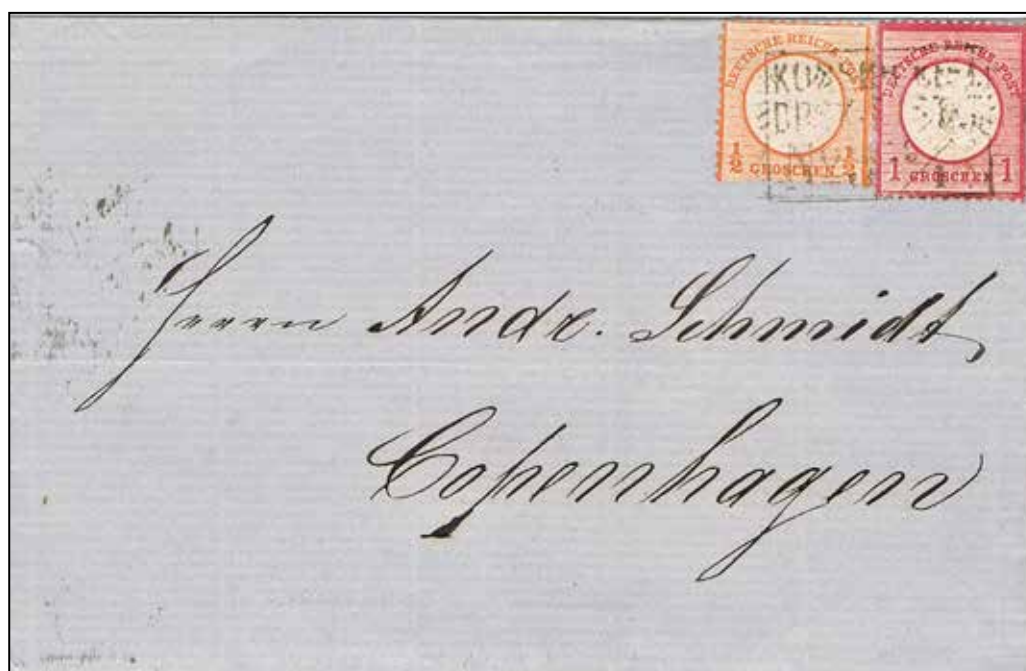 DEUTSCHE REICHS-POST
½ ½
GROSCHEN
DEUTSCHE REICHS-POST
1 GROSCHEN 1
Herrn Andr. Schmidt
Copenhagen